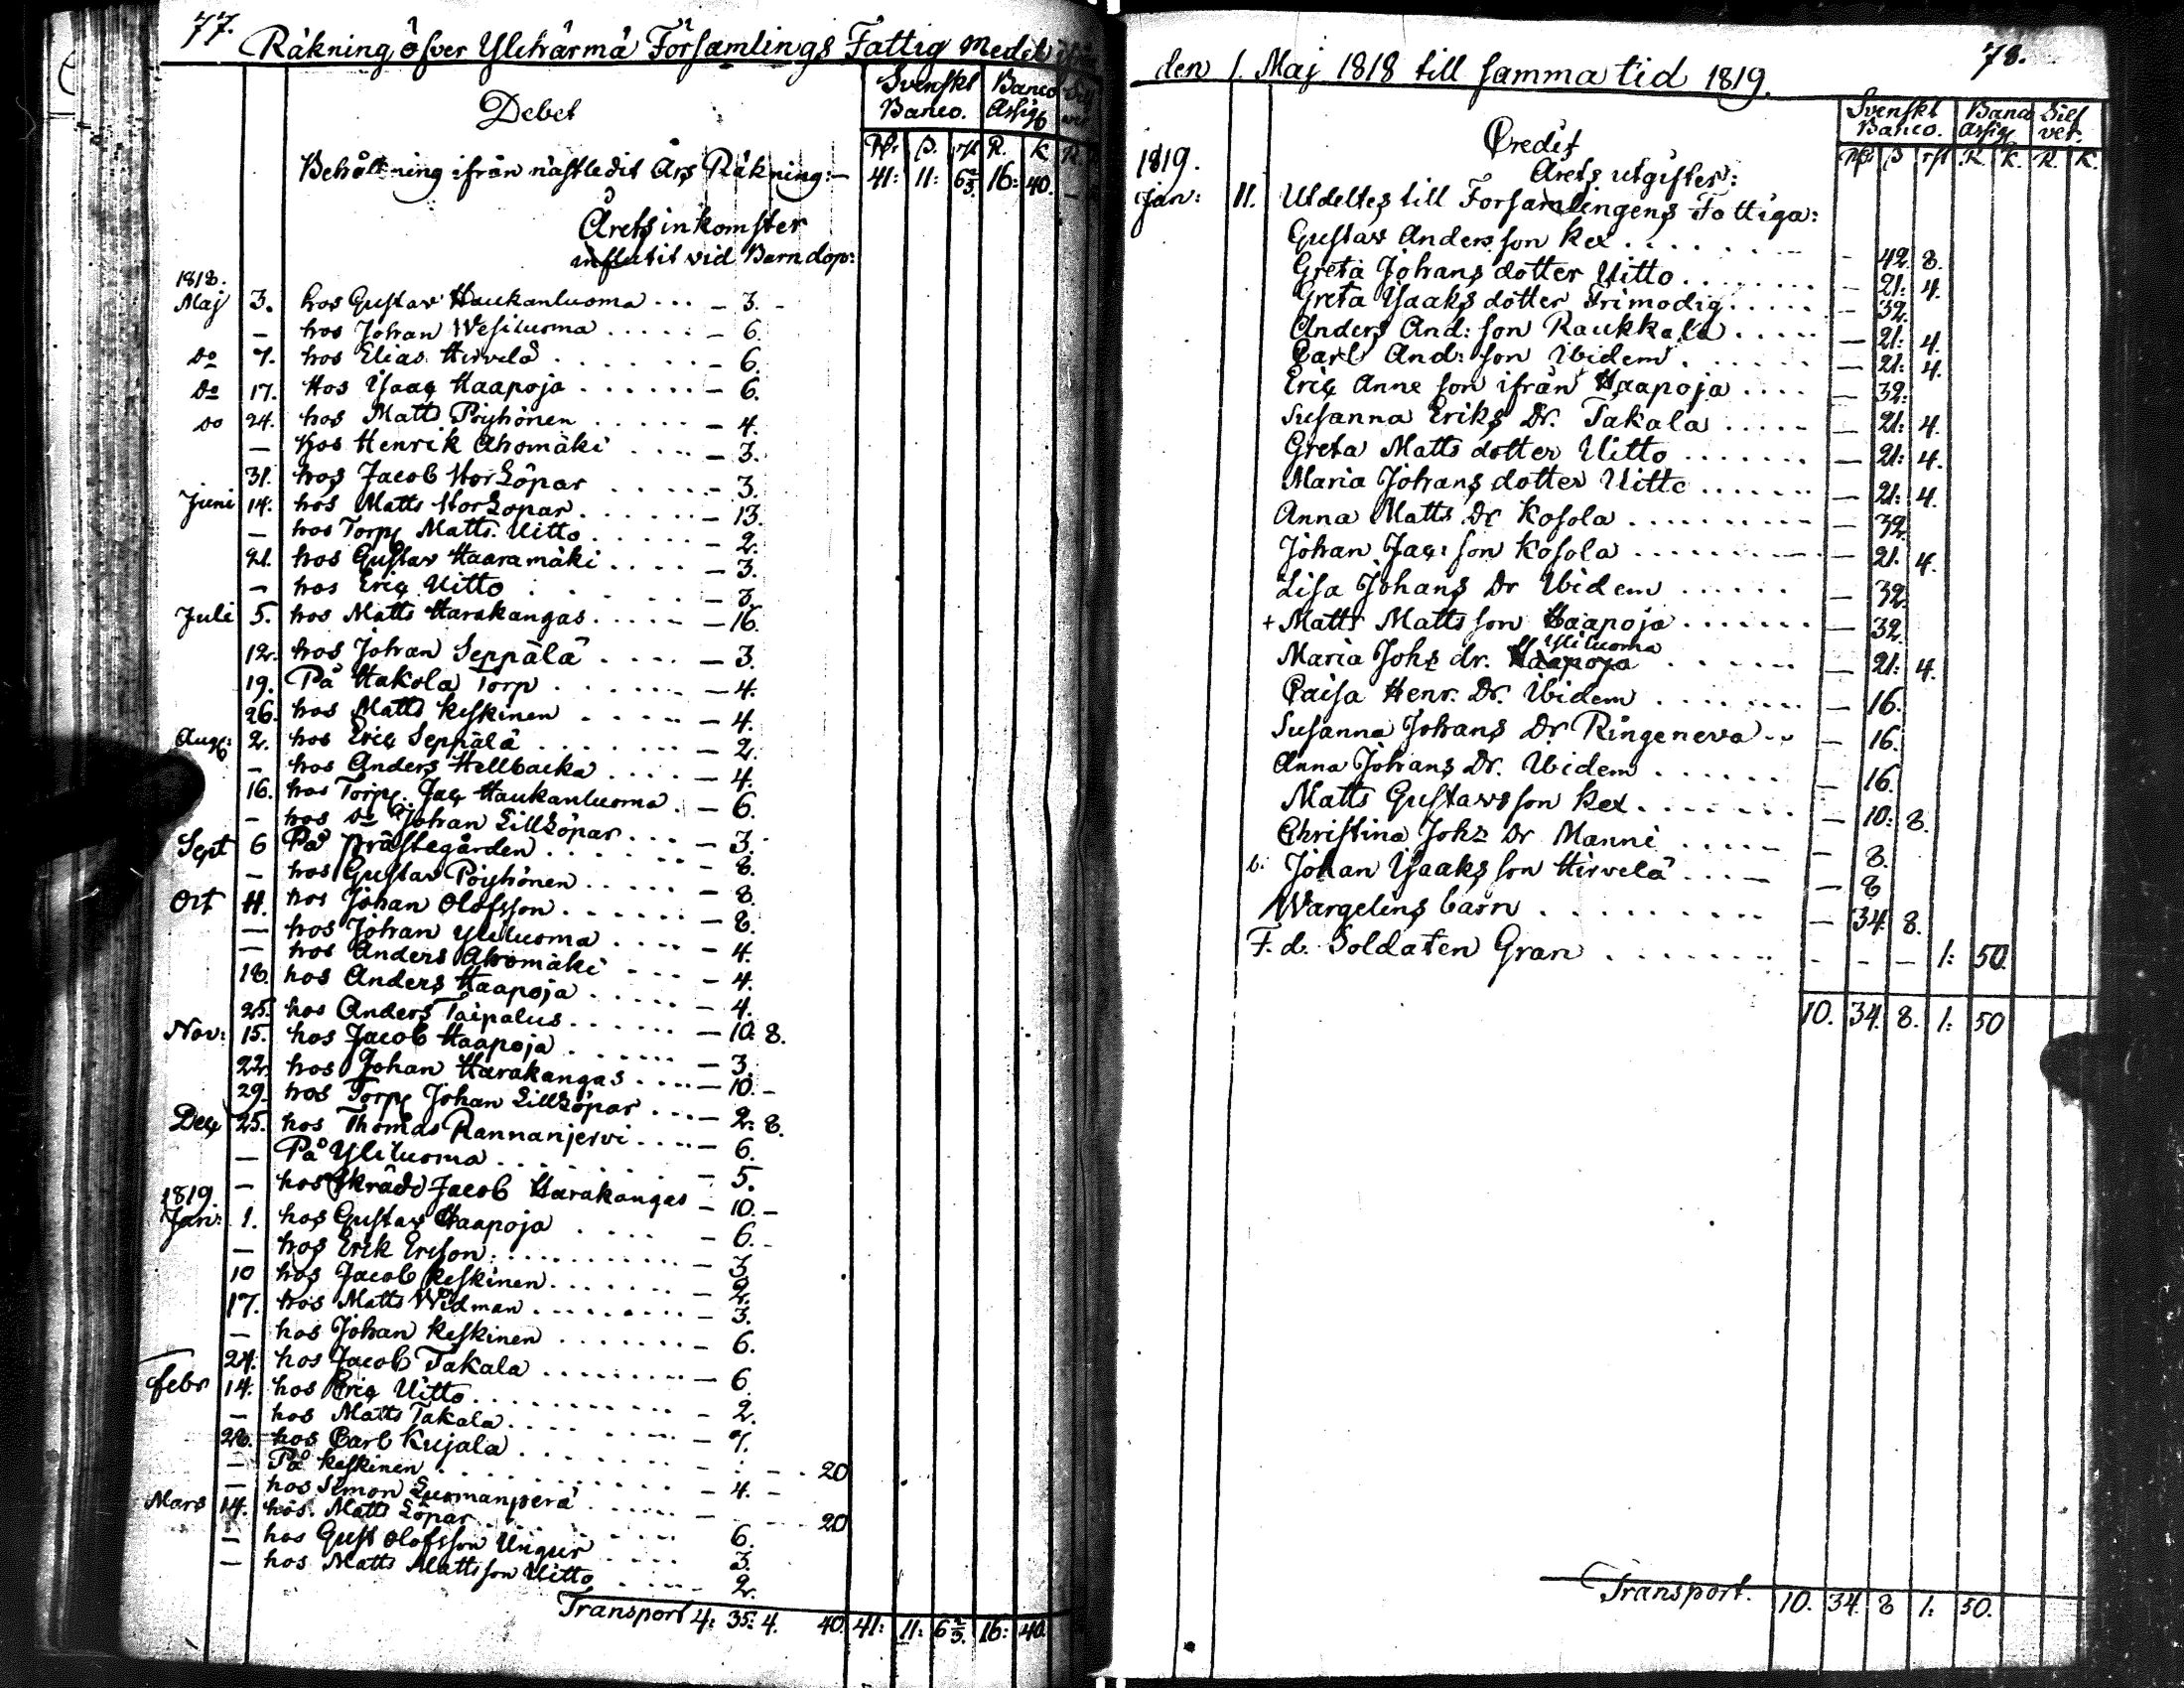 77.
Räkning öfver Ylihärmä Församlings Fattig Medel ifrån
Debet
Svenskt Banco. Banco Assig Silf ver
Rdr. ß. rst R. K R.
Behållning ifrån nästledit Års Räkning:— 41: 11: 6 2/3. 16: 40. —
Årets inkomster
influtit vid Barndop:
1818.
Maj 3. hos Gustav Haukanluoma ... — 3. -
— hos Johan Wesiluoma ..... — 6.
do 7. hos Elias Hirvelä ...... — 6.
do 17. Hos Isaac Haapoja ...... — 6.
do 24. hos Matts Pöyhönen ..... — 4.
— hos Henrik Ahomäki .... — 3.
31. hos Jacob Storlöpar ..... — 3.
Juni 14. hos Matts Storlöpar ...... — 13.
— hos Torp Matts Uitto ..... — 2.
21. hos Gustav Haaramäki .... — 3.
— hos Eric Uitto ...... — 3.
Juli 5. hos Matts Harakangas ..... — 16.
12. hos Johan Seppälä .... — 3.
19. På Hakola Torp ...... — 4.
26. hos Matts Keskinen ..... — 4.
Aug: 2. hos Eric Seppälä ...... — 2.
— hos Anders Hellbacka .... — 4.
16. hos Torp. Jac Haukanluoma . — 6.
— hos do Johan Lillöpar ... — 3.
Sept 6 På Prästegården ...... — 8.
— hos Gustav Pöyhönen ..... — 8.
Oct 11. hos Johan Olofsson ...... — 8.
— hos Johan Yliluoma .... — 4.
— hos Anders Ahomäki ... — 4.
18. hos Anders Haapoja ..... — 4.
25. hos Anders Taipalus ...... — 10. 8.
Nov: 15. hos Jacob Haapoja ...... — 3.
22. hos Johan Harakangas .... — 10. -
29. hos Torp Johan Lillöpar ... — 2. 8.
Dec 25. hos Thomas Rannanjervi .... — 6.
— På Yliluoma ...... — 5.
— hos Skrädd Jacob Harakangas — 10. -
1819
Jan: 1. hos Gustav Haapoja .... — 6. -
— hos Erik Ersson: ......... — 3
10 hos Jacob Keskinen ....... — 2.
17. hos Matts Widman ........ — 3.
— hos Johan Keskinen ....... — 6.
24. hos Jacob Takala ........ — 6
Febr 14. hos Eric Uitto ......... — 2.
— hos Matts Takala ........ — 7.
28. hos Carl Kujala ....... - . - . 20
— På Keskinen ......... — 4. -
— hos Simon Luomanperä ..... - - - 20
Mars 14. hos Matts Löpar ........ 6.
— hos Gust Olofsson Ungur .... 3.
— hos Matts Mattsson Uitto .... — 2.
Transport 4: 35: 4. 40. 41: 11: 6 2/3. 16: 40.
78.
den 1. Maj 1818 till samma tid 1819.
Credit
Svenskt Banco. Banco Assig Silf ver.
Rdr ß rst R. K. R. K.
1819. Årets utgifter:
Jan: 11. Utdeltes till Församlingens Fattiga:
Gustav Andersson Kex ........ — 42. 8.
Greta Johansdotter Uitto ........ — 21: 4.
Greta Isaaksdotter Frimodig ..... — 32.
Anders And: son Raukkala ..... — 21: 4.
Carl And: son Ibidem ...... — 21: 4.
Eric Anne son ifrån Haapoja .... — 32:
Susanna Eriks Dr. Takala ..... — 21: 4.
Greta Matts dotter Uitto ....... — 21: 4.
Maria Johans dotter Uitto ....... — 21: 4.
Anna Matts Dr Kosola ......... — 32.
Johan Jac: son Kosola ......... — 21. 4.
Lisa Johans Dr Ibidem ...... — 32.
+ Matts Mattsson Haapoja ....... — 32.
Yliluoma
Maria Johs dr. Haapoja ...... — 21: 4.
Caisa Henr. Dr. Ibidem ........ — 16.
Susanna Johans Dr Ringeneva .. — 16.
Anna Johans Dr. Ibidem ...... — 16.
Matts Gustavsson Kex ....... — 10: 8.
Christina Johs Dr Manni ..... — 8.
b. Johan Isaaksson Hirvelä .... — 8
Wargelins barn ......... — 34. 8.
F. d. Soldaten Gran ....... - - — 1: 50.
10. 34. 8. 1: 50
Transport. 10. 34. 8 1: 50.